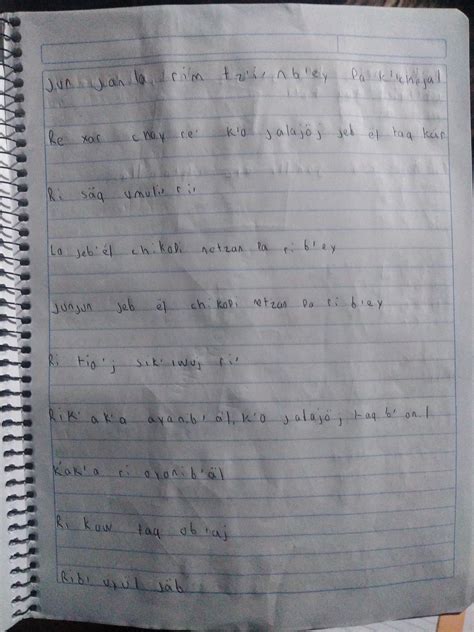 Jun janila rim tz'i'nb'ey pa k'ichejal
Re xar choy re' k'o jalajöj jeb'ël taq kär
Ri säq umul ri'
La jeb'ël chikopi netzan pa ri b'ey
Junjun jeb'ël chikopi netzan pa ri b'ey
Ri tio'j sik'iwuj ri'
Rik'ak'a ayanb'äl, k'o jalajöj taq b'onil
K'ak'a ri ayonib'äl
Ri kow taq ab'aj
jäb